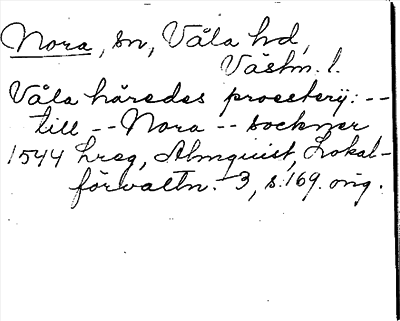 Nora, sn, Våla hd,
Västm. l.
Våla häredes proesterij: --
till -- Nora -- sockner
1544 Lreg, Almquist, Lokal-
förvaltn. 3, s. 169. orig.